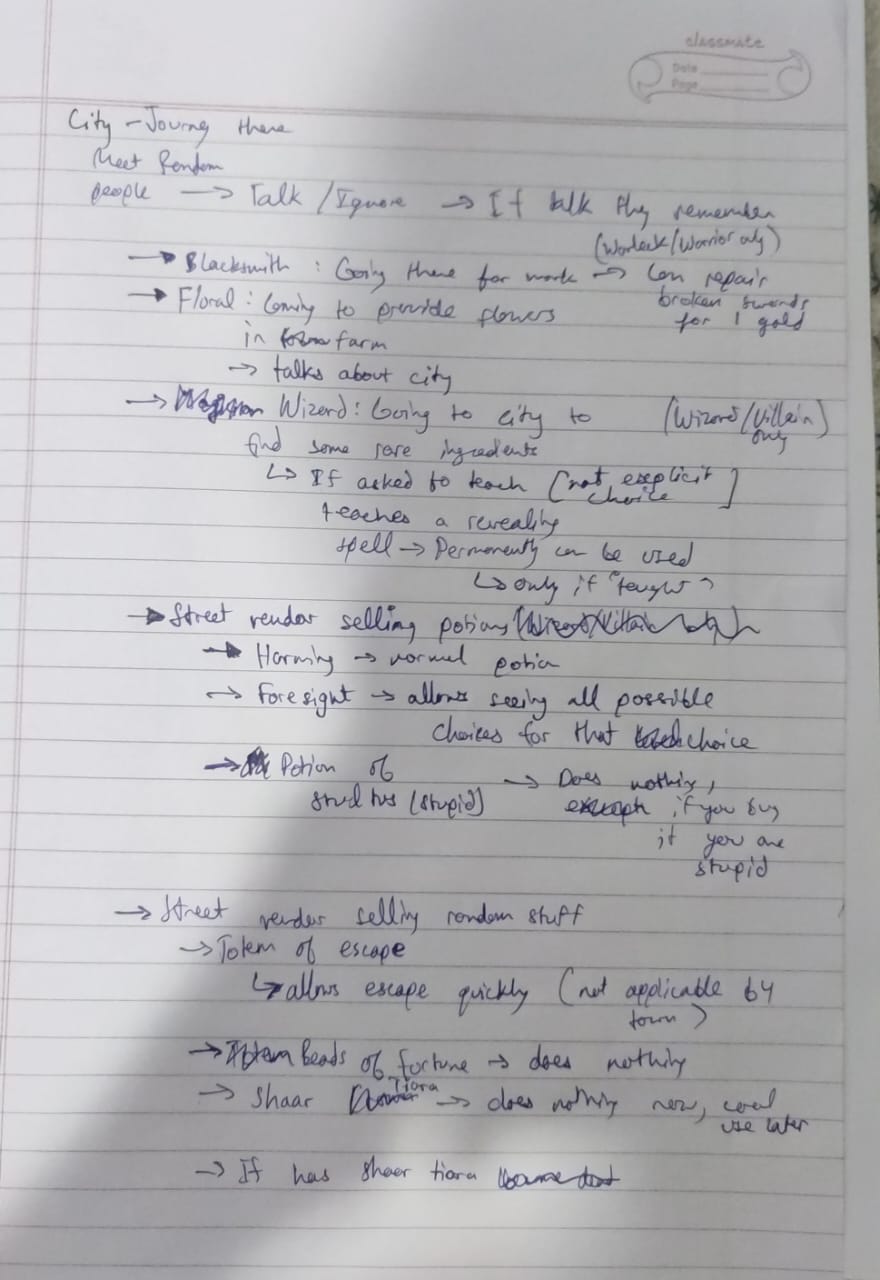 classmate
Date
Page
City - Journey there
Meet Random
people → Talk / Ignore → If talk they remember
(Warlock/Warrior only)
→ Blacksmith : Going there for work → Can repair
broken swords
for 1 gold
→ Floral : Coming to provide flowers
in farm
→ talks about city
→ Wizard : Going to city to (Wizard/Villain
only)
find some rare ingredients
↳ If asked to teach [not explicit
choice]
teaches a revealing
spell → Permanently can be used
↳ only if "taught"
→ Street vendor selling potions
→ Harming → normal potion
→ Foresight → allows seeing all possible
choices for that choice
→ Potion of
(stupid) → Does nothing,
if you buy
it you are
stupid
→ Street vendor selling random stuff
→ Totem of escape
↳ allows escape quickly (not applicable by
town)
→ Beads of fortune → does nothing
→ Shaar Tiara → does nothing now,
use later
→ If has shaar tiara